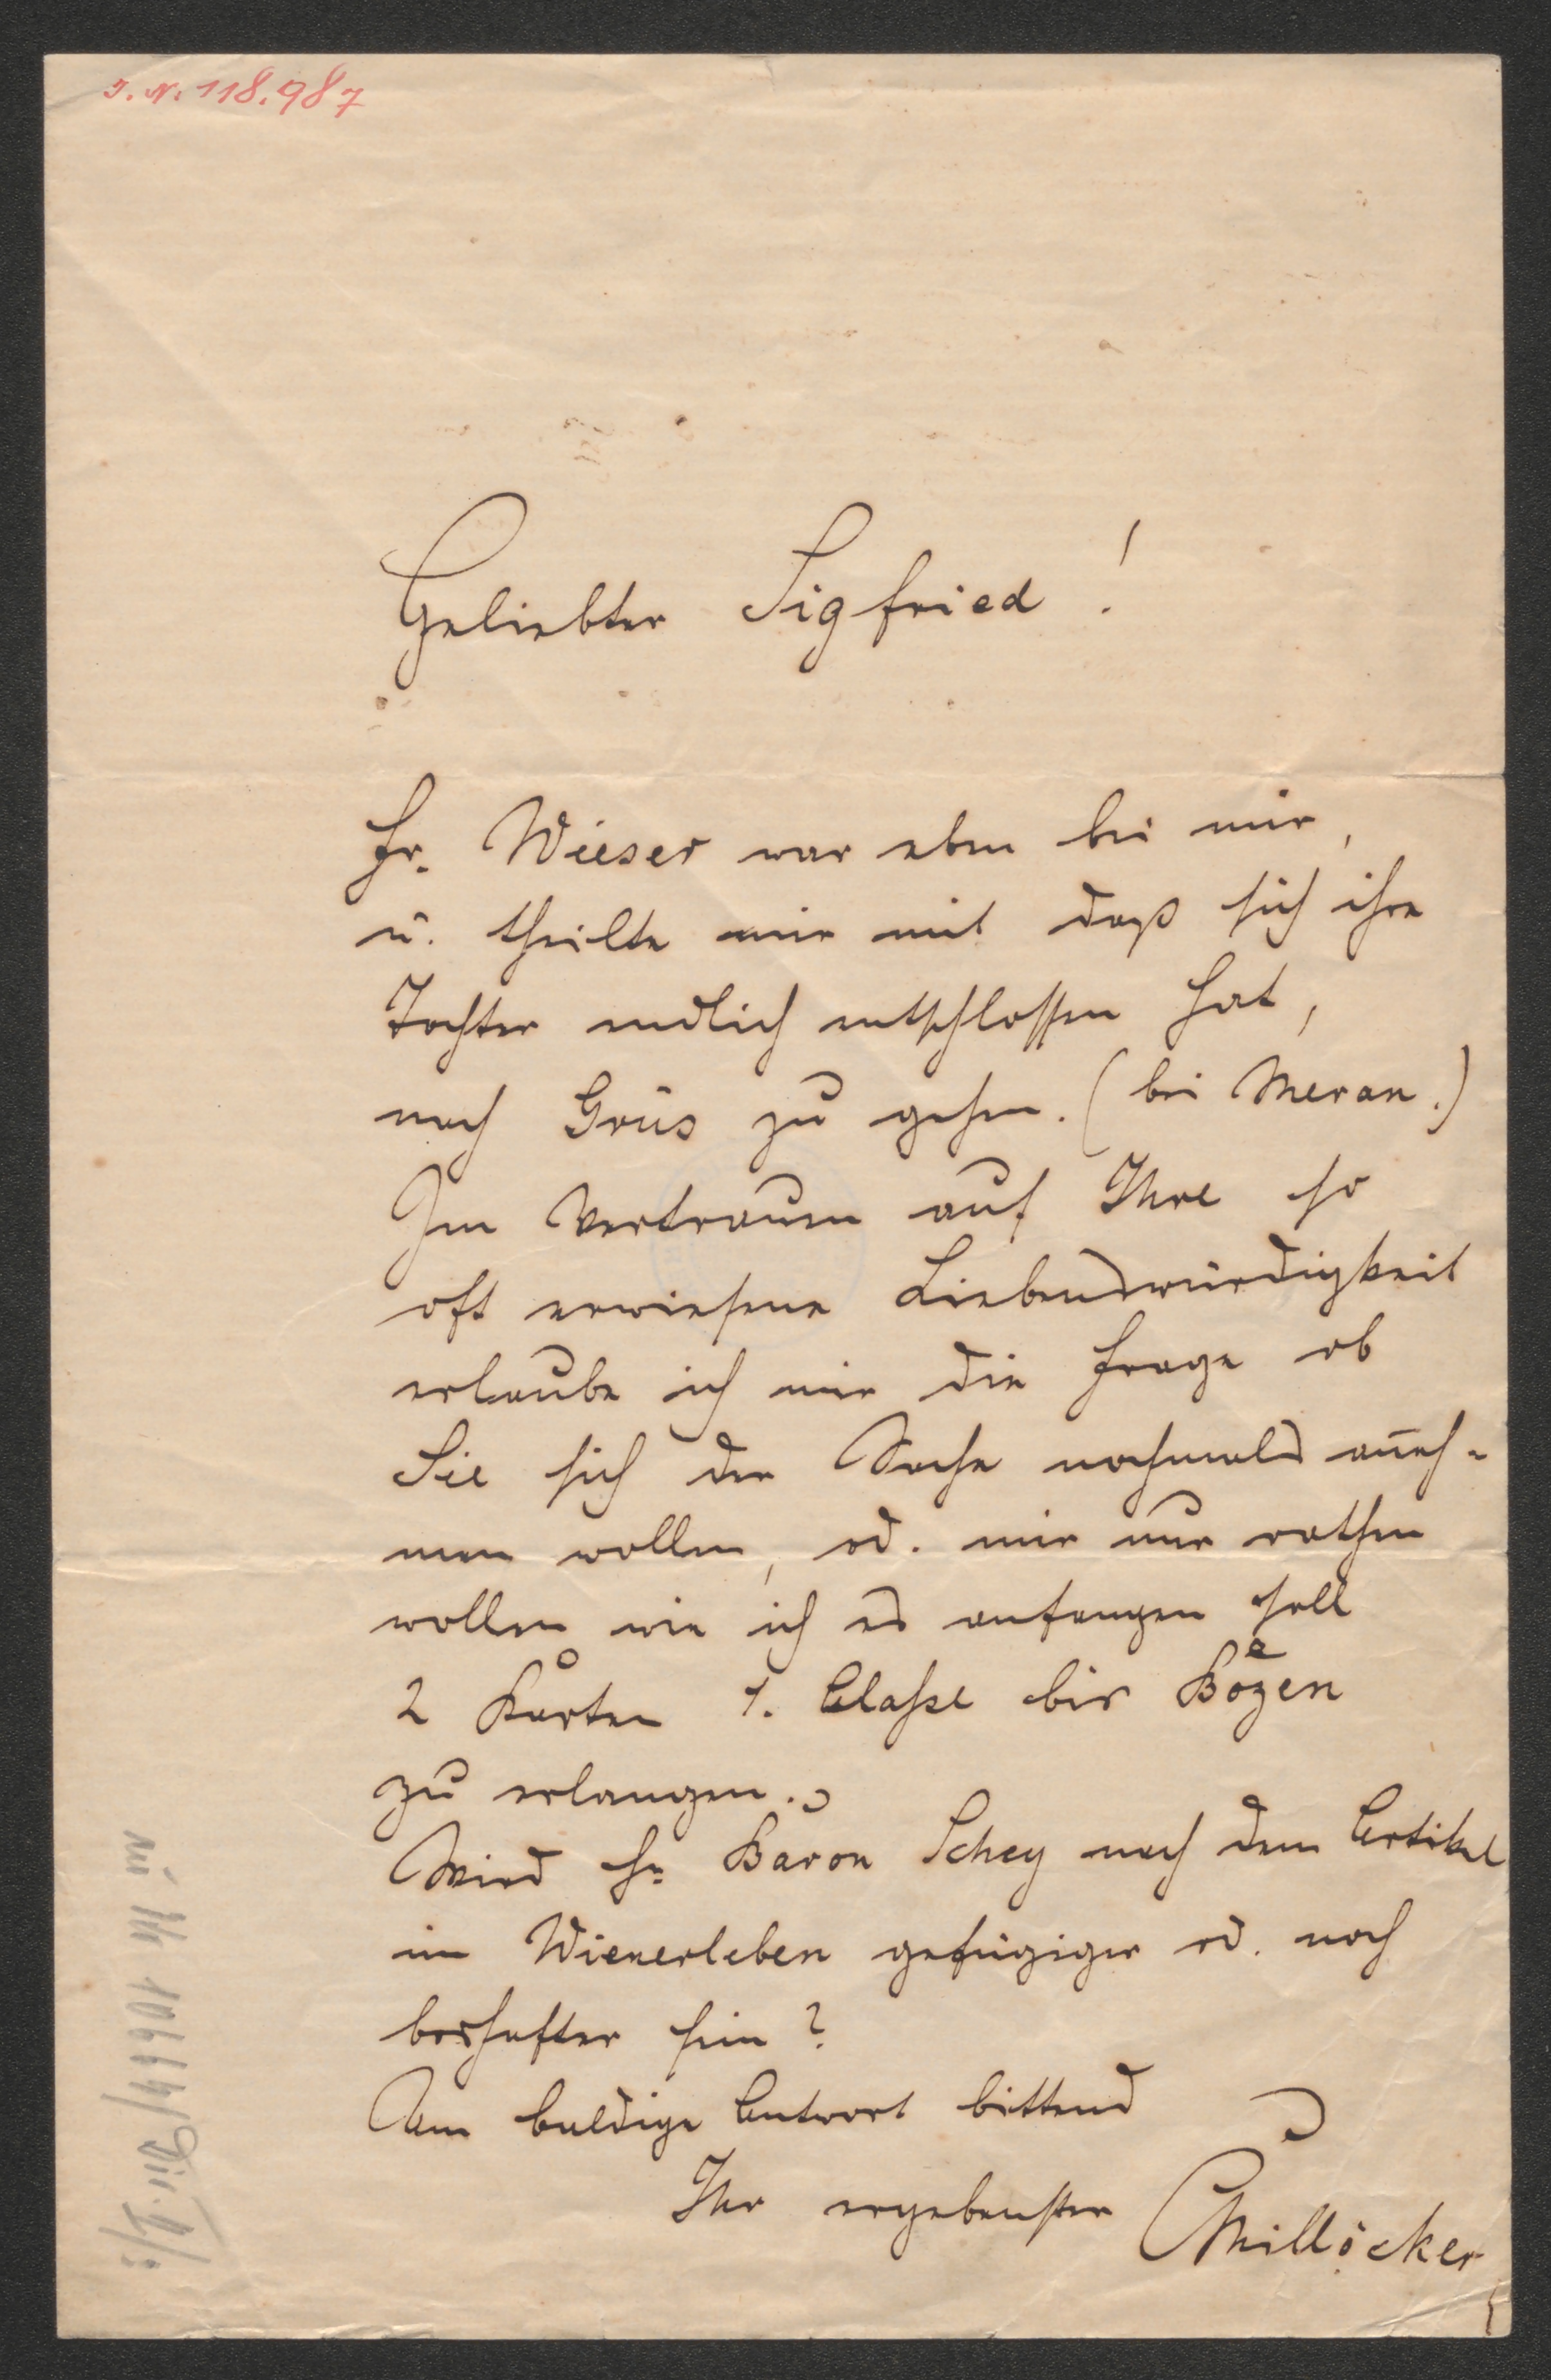 I. N. 118.987
Geliebter Sigfried!
Fr. Wieser war eben bei mir,
u. theilte mir mit daß sich ihre
Tochter endlich entschlossen hat,
nach Gries zu gehen. (bei Meran.)
Im Vertrauen auf Ihre so
oft erwiesene Liebenswürdigkeit
erlaube ich mir die Frage ob
Sie sich der Sache nochmals anneh-
men wollen, od. mir nur rathen
wollen wie ich es anfangen soll
2 Karten 1. Classe bis Bozen
zu erlangen.
Wird Hr. Baron Schey nach dem Artikel
im Wienerleben gefügiger od. noch
boshafter sein?
Um baldige Antwort bittend
Ihr ergebenster CMillöcker